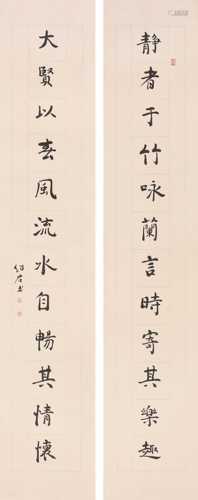 静者于竹咏蘭言時寄其樂趣
大賢以春風流水自暢其情懷